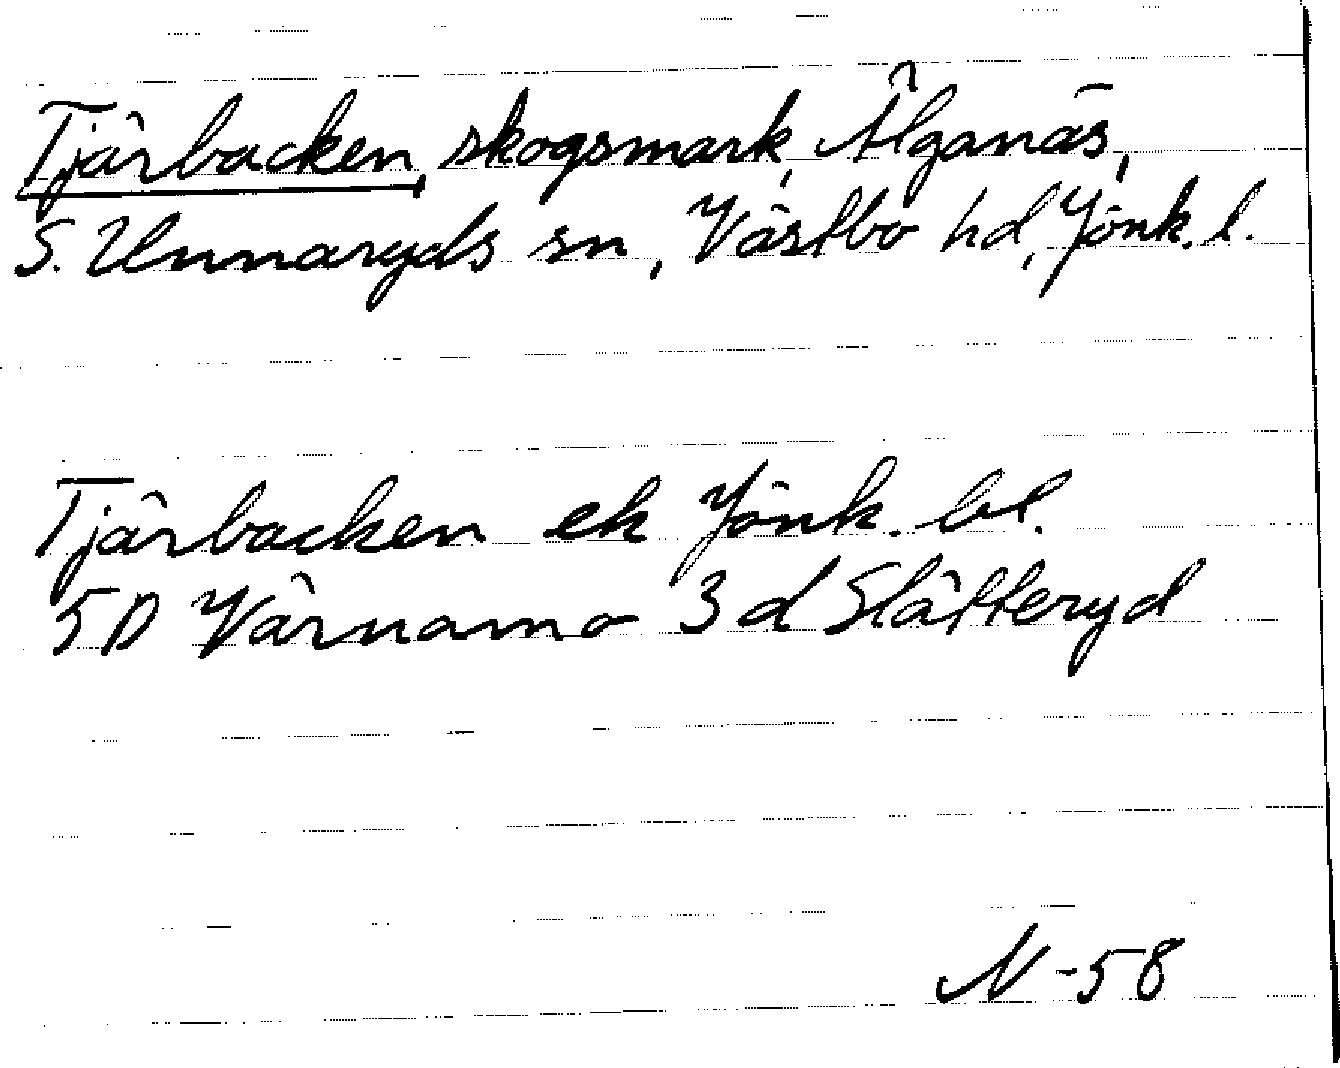 Tjärbacken, skogsmark, Älganäs,
S. Unnaryds sn, Västbo hd, Jönk. l.
Tjärbacken ek Jönk. bl.
5D Värnamo 3d Slätteryd
N-58